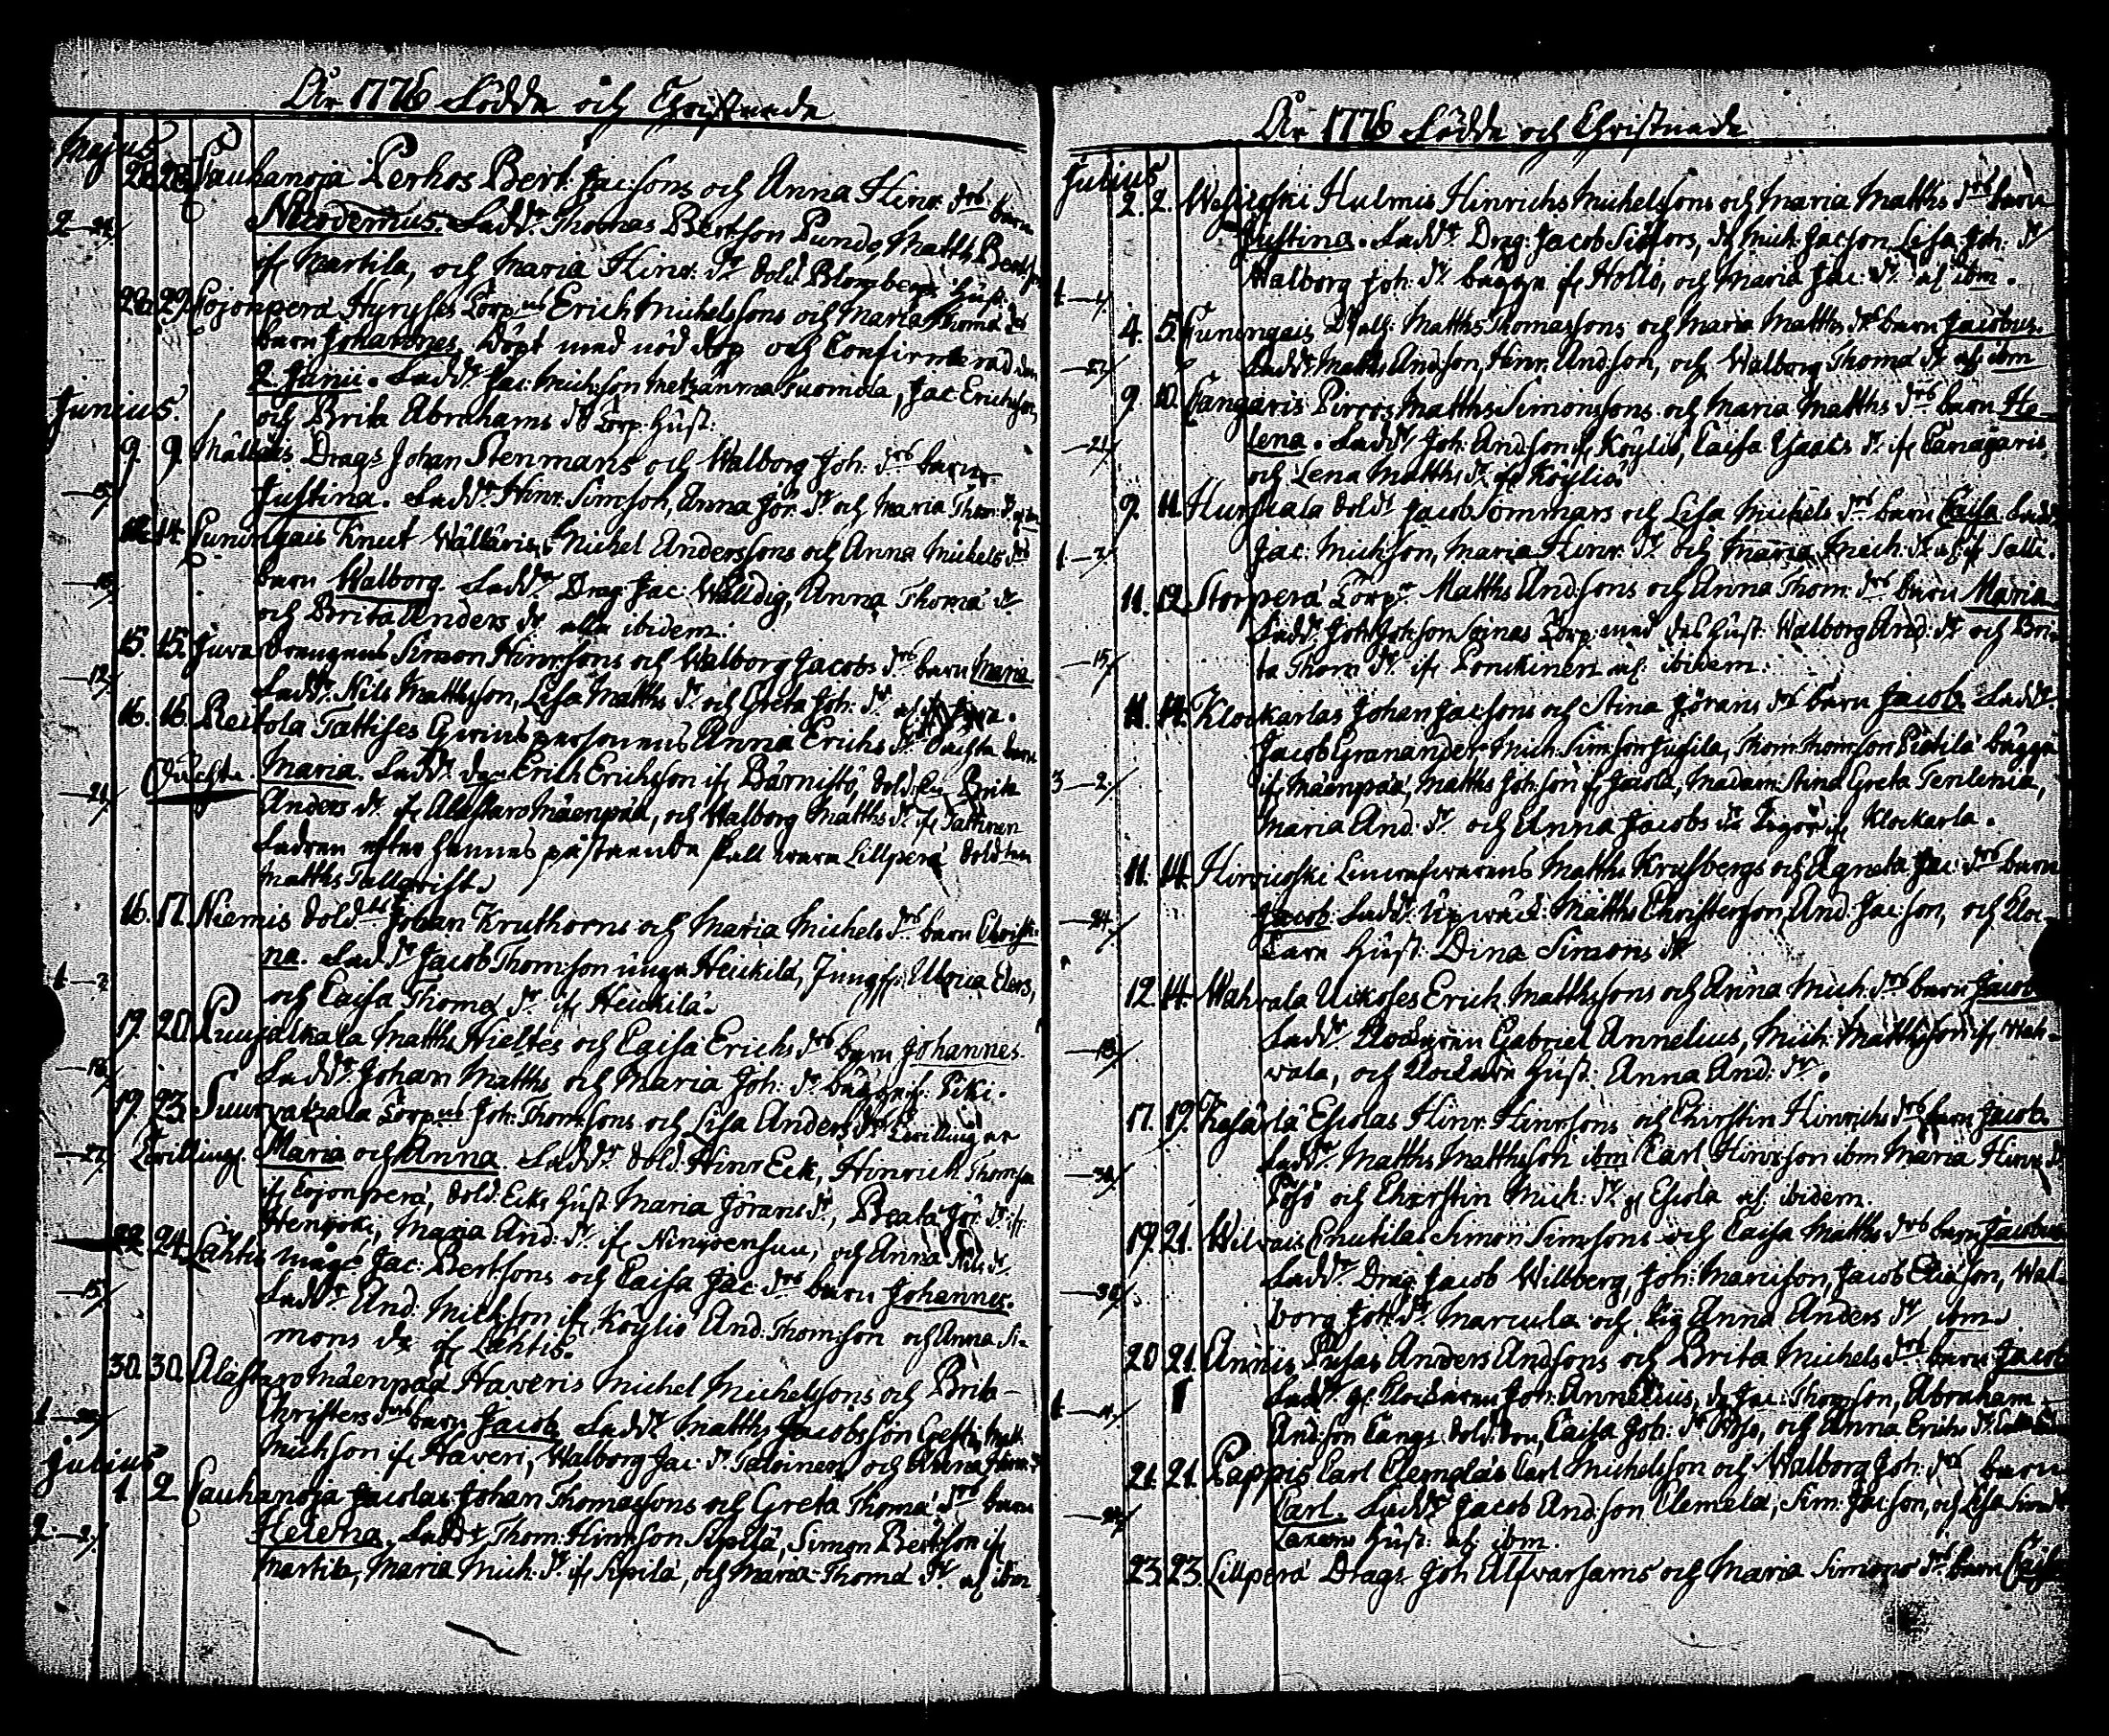 År 1776 Födde och Christnade
Majus
28. 28. Pauhanoja Perhos Bert: Jacsons och Anna Hinr: drs barn
2—24/
Nicodemus. Fadd: Thomas Bertson Pundo, Matths Bertson
if Martila, och Maria Hinr: dr Sold: Blombergs Hust:
29. Pojonperä Hyryses Torp: Erich Michelssons och Maria Thomæ drs
barn Johannes. Döpt med nöd dop och Confirmerad den
2 Junii. Fadd: Jac: Michson Metzänmaa Tuomola, Jac: Erichson,
och Brita Abrahams dr Torp: Hust:
Junius.
9. 9. Mällöis Drag: Johan Stenmans och Walborg Joh: drs barn
—15/
Justina. Fadd: Hinr: Simson, Anna Jör: dr och Maria Thom: dr
14. Puningais Knut Wälläris Michel Anderssons och Anna Michels drs
—18/
barn Walborg. Fadd: Drag: Jac: Wälldig, Anna Thomæ dr
och Brita Anders dr alla ibidem.
15. 15. Juva drengens Simon Hinrsons och Walborg Jacobs drs barn Maria
—12/
Fadd: Nils Mattsson, Lisa Matths dr och Greta Joh: dr
16. 16. Reikola Tattises Anna Erichs dr Oächta barn
Oächta. Maria. Fadd: Erich Erichsson if Bärnistö, Sold: Brita
—21/
Anders dr if Alastaro Mäenpää, och Walborg Matths dr if Tattinen
Fadren efter hennes påstående skall wara Lillperä Soldaten
Matths Tallqvist.
16. 17. Niemis Sold: Johan Kruthorns och Maria Michels drs barn Christi-
na. Fadd: Jacob Thomson unga Heickilä, Jungf: Ulrica Elers,
1—2
och Caisa Thomæ dr if Heickilä.
19. 20. Puujalkala Matths Hieltes och Caisa Erichs drs barn Johannes.
—18/
Fadd: Johan Matths och Maria Joh: dr bägge if Piki.
19. 23. Suurvatzala Torp: Joh: Thomsons och Lisa Anders drs Twillingar
—27/
Twilling: Maria och Anna. Fadd: Sold: Hinr Eck, Hinrich Thomson
if Pojonperä, Sold: Ecks Hust Maria Jörans dr, Beata Jör: dr if
Henijoki, Maria And: dr if Ninijoensuu, och Anna Nils dr
22. 24. Lähtis mågs Jac: Bertsons och Caisa Jac: drs barn Johannes.
—15/
Fadd: And: Michson if Köyliö And: Thomson och Anna Si-
mons dr if Lähtis.
30. 30. Alastaro Mäenpää Haveris Michel Michelssons och Brita
Christers drs barn Jacob. Fadd: Matths Jacobsson Matts
Michson if Haveri, Walborg Jac: dr Taloinen, och Anna Hinr: dr
Julius
1. 2. Pauhanoja Jacolas Johan Thomassons och Greta Thomæ drs barn
Helena. Fadd: Thom: Hinrson Sipilä, Simon Bertson if
Martila, Maria Mich: dr if Sipilä, och Maria Thomæ dr af ibm
År 1776 Födde och Christnade
Julius
2. 2. Hulmis Hinrichs Michelssons och Maria Matths drs barn
Justina. Fadd: Drag: Jacob Siöfors, Mich: Jacson, Lisa Joh: dr
Walborg Joh: dr bägge if Hollo, och Maria Jac: dr af ibm.
4. 5. Puningais Matths Thomassons och Maria Matths drs barn Jacobus.
—27/
Fadd: Matths Andson, Hinr: Andson, och Walborg Thomæ dr af ibm
9. 10. Cangaris Pirris Matths Simonssons och Maria Matths drs barn He-
—21/
lena. Fadd: Joh: Andson if Köyliö, Caisa Isaacs dr if Cangaris,
och Lena Matths dr if Köyliö.
9. 11. Hurskala Sold: Jacob Sommars och Lisa Michels drs barn Caisa. Fadd:
Jac: Michson, Maria Hinr: dr och Maria Mich: dr af Salli.
11. 12. Storperä Torp: Matths Andsons och Anna Thom: drs barn Maria
Fadd: Joh: Johson Torp: med des Hust: Walborg And: dr och Bri-
—15/
ta Thom: dr if Ponckinen af ibidem.
11. 14. Klockarlas Johan Jacsons och Stina Jörans drs barn Jacob. Fadd:
Jacob Grananders Mich: Simson Jussila, Thom: Thomson Pietilä bägge
3—2/
if Mäenpää, Matths Johson if Jaiola, Madam: Stina Greta Terlenia,
Maria And: dr och Anna Jacobs dr if Klockarla.
11. 14. Hirvikoski Matths Krusbergs och Agneta Jac: drs barn
—24/
Jacob. Fadd: Matths Christersson, And: Jacson, och Kloc-
karn Hust: Dina Simons dr
12. 14. Wahvala Uckoses Erich Matthssons och Anna Mich: drs barn Jacob
—18/
Fadd: Klockaren Gabriel Annelius, Mich: Matthsson if Wah-
vala, och Klockarn Hust: Anna And: dr.
17. 19. Kesärlä Eskolas Hinr: Hinrsons och Christin Hinrichs drs barn Jacob.
—30/
Fadd: Matths Matthsson ibm Carl Hinrson ibm Maria Hinr: dr
Pösö och Christin Mich: dr if Eskola af ibidem.
19. 21. Wilvais Cnutilas Simon Simsons och Caisa Matths drs barn Jacobus
—30/
Fadd: Drag: Jacob Willberg, Joh: Marcison, Jacob Eliason, Wal-
borg Joh: dr Marcula och Pig: Anna Anders dr ibm.
20. 21. Annis Pusas Anders Andsons och Brita Michels drs barn Jacob
Fadd: Klockaren Joh: Annelius, Jac: Thomson, Abraham
Andson Cangs Caisa Joh: dr och Anna Erichs dr
21. 21. Pappis Carl Clemolas Carl Michelsson och Walborg Joh: drs barn
Carl. Fadd: Jacob Andson Clemela, Sim: Jacson, och Lisa Simons
Hust: af ibm.
23. 23. Lillperä Drag: Joh Ulfvarsams och Maria Simons drs barn Caisa